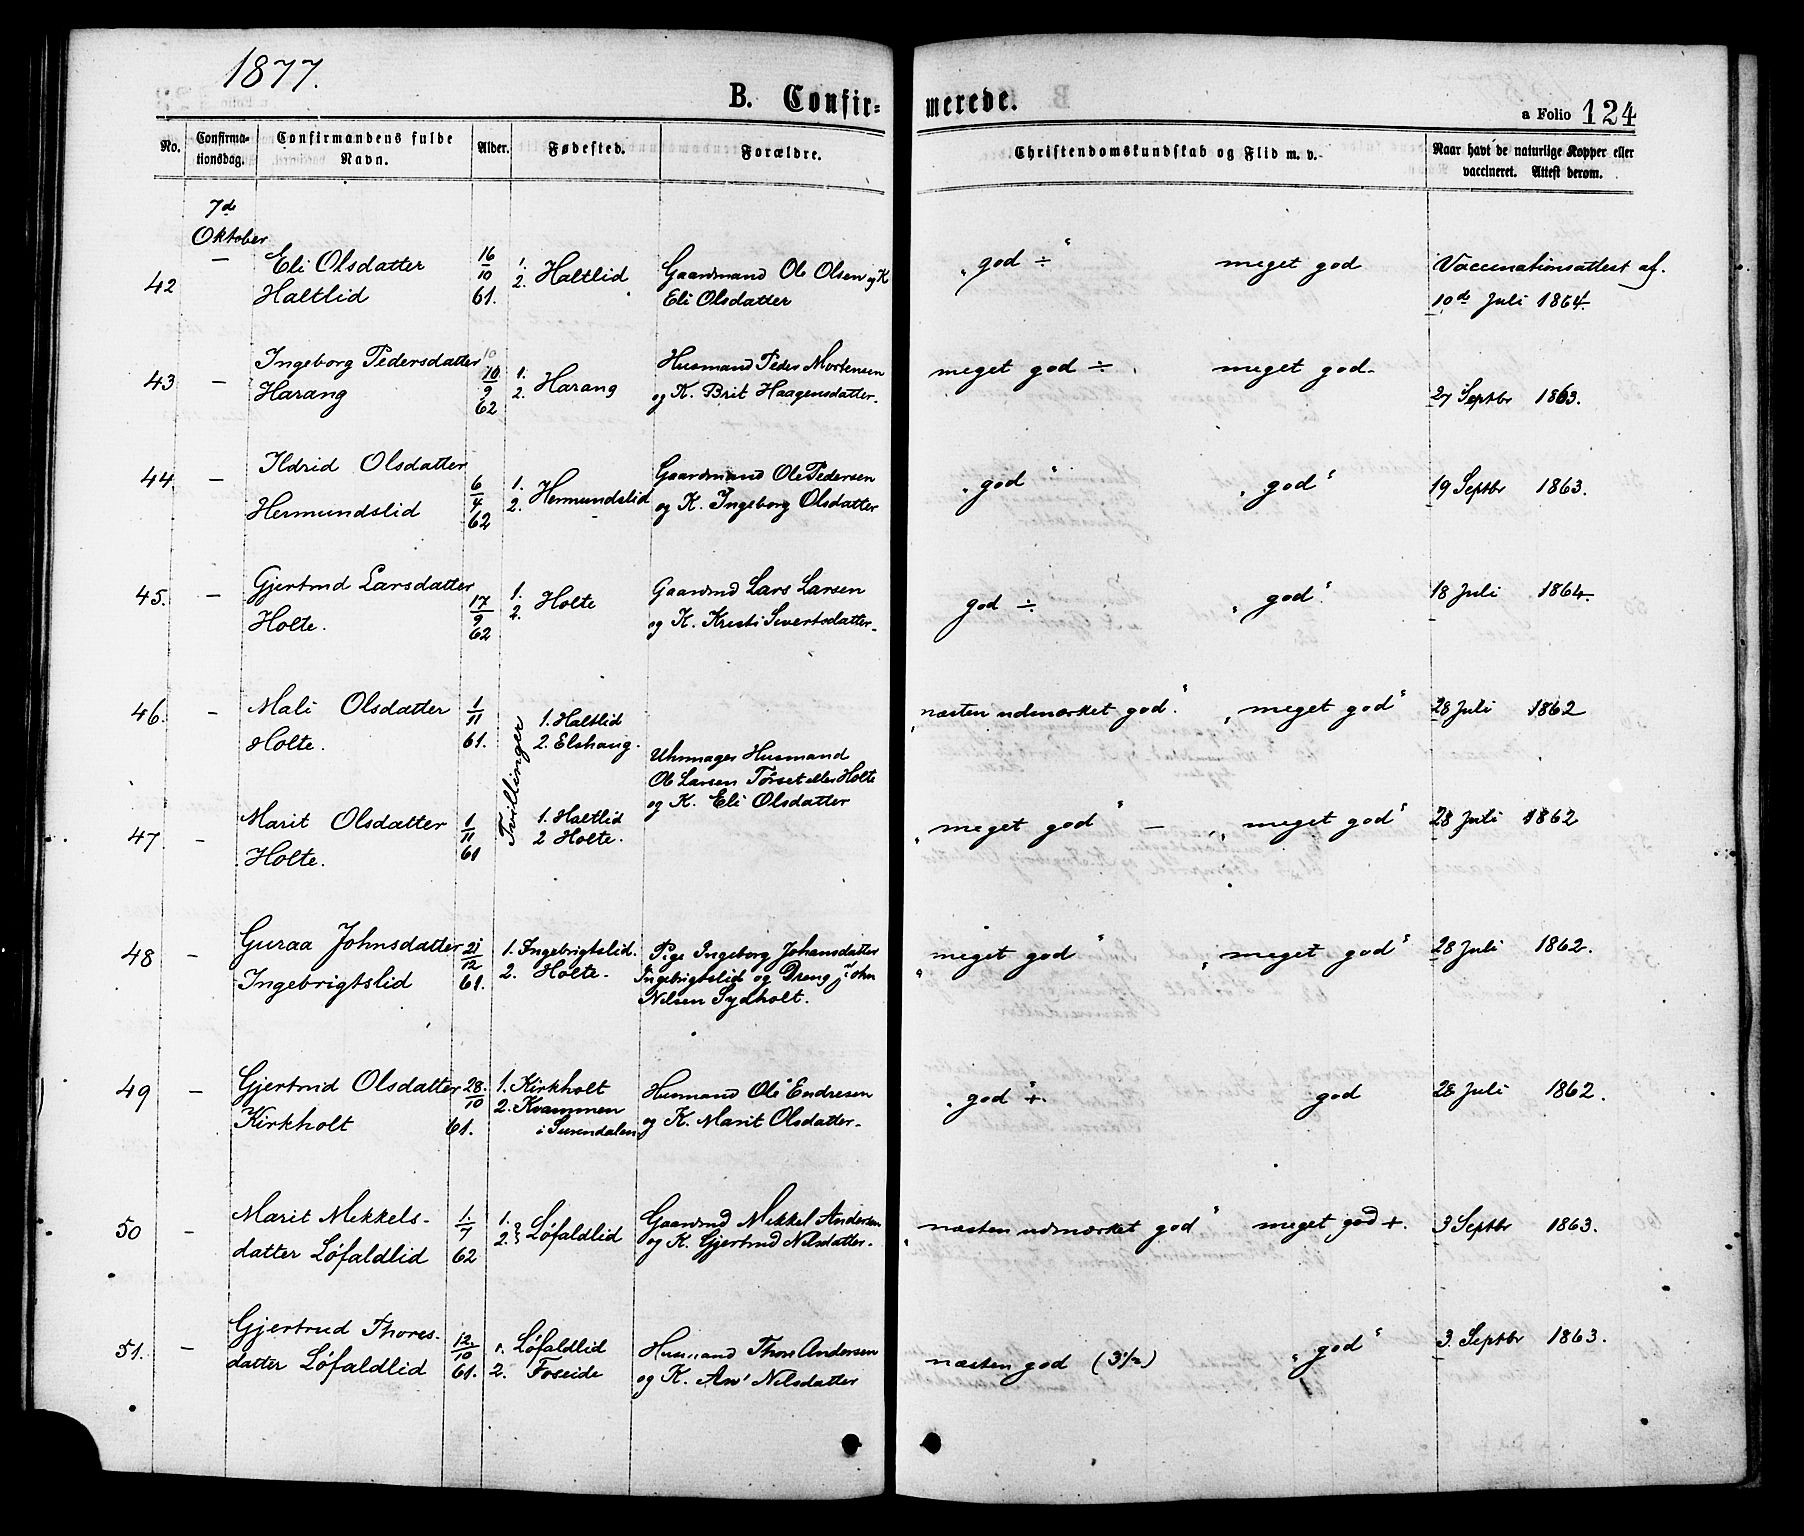 1877.
B. Confir-
merede.
a Folio 124
No.
Confirma-
tionsdag.
Confirmandens fulde
Navn.
Alder.
Fødested.
Forældre.
Christendomskundskab og Flid m. v.
Naar havt de naturlige Kopper eller
vaccineret. Attest derom.
7de
Oktober
42
—
Eli Olsdatter
Haltlid
16
10
61.
1.
2. Haltlid
Gaardmand Ole Olsen og K
Eli Olsdatter
„god ÷“
meget god
Vaccinationsattest af.
10de Juli 1864.
43
—
Ingeborg Pedersdatter
Harang
10
9
62
1.
2. Harang
Husmand Peder Mortensen
og K. Brit Haagensdatter.
meget god ÷
meget god
27 Septbr 1863.
44.
—
Ildrid Olsdatter
Hermundslid
6
4
62
1.
2. Hermundslid
Gaardmand Ole Pedersen
og K. Ingeborg Olsdatter
„god“
„god“
19 Septbr 1863.
45.
—
Gjertrud Larsdatter
Holte.
17
9
62
1.
2. Holte
Gaardmd Lars Larsen
og K. Kristi Sivertsdatter.
god ÷
„god“
18 Juli 1864.
46.
—
Mali Olsdatter
Holte.
1
11
61.
Tvillinger
1. Haltlid
2. Elshaug.
Uhrmager Husmand
Ole Larsen Tørset eller Holte
og K. Eli Olsdatter
„næsten udmærket god“
„meget god“
28 Juli 1862
47
—
Marit Olsdatter
Holte.
1
11
61
1. Haltlid
2 Holte.
„meget god“ —
„meget god“
28 Juli 1862
48
—
Guraa Johnsdatter
Ingebrigtslid
21
12
61.
1. Ingebrigtslid.
2. Holte.
Pige Ingeborg Johansdatter
Ingebrigtslid og Dreng John
Nilsen Sydholt.
„meget god“
„meget god“
28 Juli 1862.
49
—
Gjertrud Olsdatter
Kirkholt
28.
10
61.
1. Kirkholt
2. Kvammen
i Surendalen
Husmand Ole Endresen
og K. Marit Olsdatter.
„god“ +.
god
28 Juli 1862.
50
—
Marit Mikkels-
datter Løfaldlid
1.
7
62
1.
2. } Løfaldlid
Gaardmd Mikkel Andersen
og K. Gjertrud Nilsdatter.
„næsten udmærket god“
meget god +.
3 Septbr 1863.
51.
—
Gjertrud Thores-
datter Løfaldlid
12.
10
61.
1. Løfaldlid
2. Foseide
Husmand Thore Andersen
og K. An' Nilsdatter
næsten god (3½)
„god“
3. Septbr 1863.